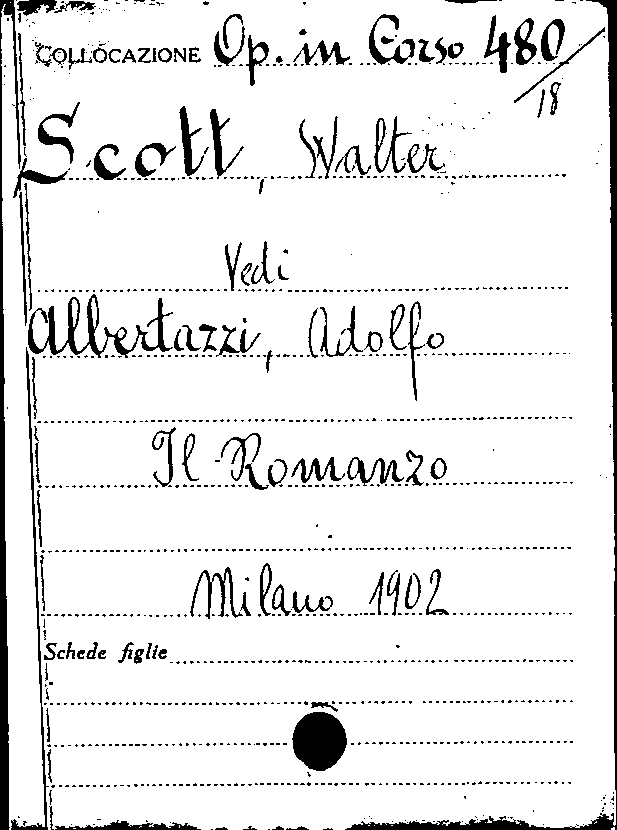 COLLOCAZIONE Op. in Corso 480/18
Scott, Walter
Vedi
Albertazzi, Adolfo
Il Romanzo
Milano 1902
Schede figlie